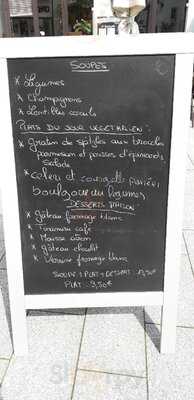 SOUPES
* Légumes
* Champignons
* Lentilles corail
PLATS DU JOUR VEGETARIEN :
* Gratin de spätzles aux brocolis
parmesan et pousses d'épinards
salade
* celeri et courgette panées
boulgour aux légumes
DESSERTS MAISON
* gâteau fromage blanc
* Tiramisu café
* Mousse citron
* gâteau chocolat
* Verrine fromage blanc
SOUPE + PLAT + DESSERT : 13,50€
PLAT : 9,50€